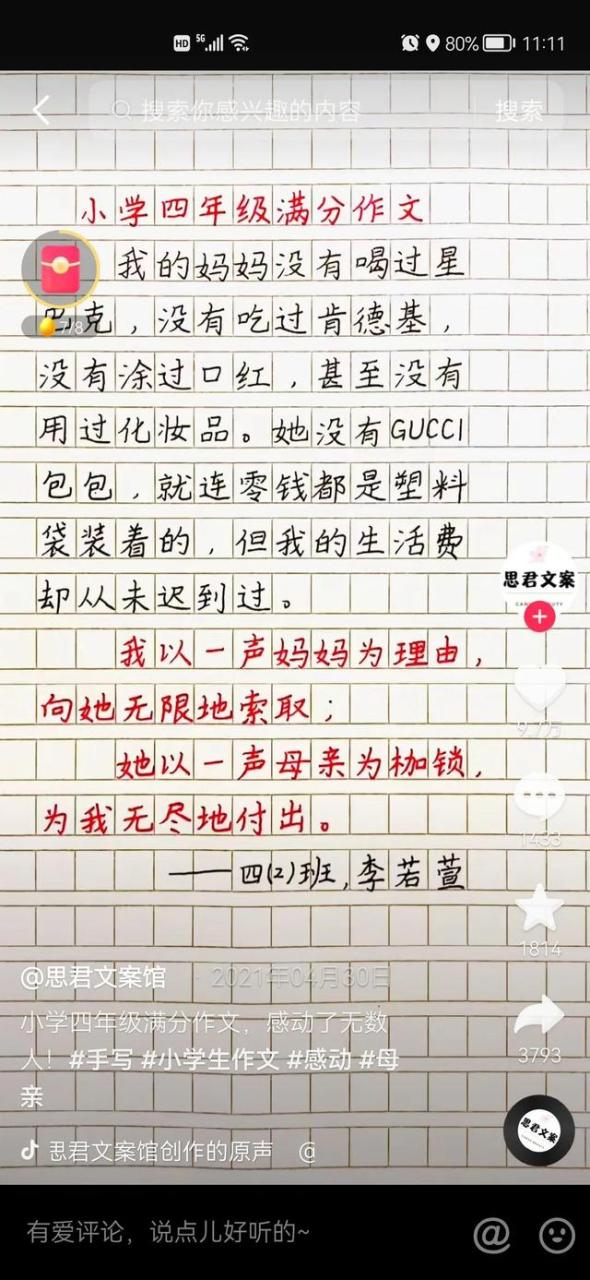 HD 5G 80% 11:11
搜索你感兴趣的内容 搜索
小学四年级满分作文
我的妈妈没有喝过星
巴克，没有吃过肯德基，
7/8
没有涂过口红，甚至没有
用过化妆品。她没有GUCCI
包包，就连零钱都是塑料
袋装着的，但我的生活费
却从未迟到过。
思君文案
我以一声妈妈为理由，
向她无限地索取；
9.7万
她以一声母亲为枷锁，
为我无尽地付出。
1433
——四(2)班,李若萱
1814
@思君文案馆 · 2021年04月30日
小学四年级满分作文，感动了无数
人！#手写 #小学生作文 #感动 #母
亲
3793
思君文案馆创作的原声 @
思君文案
有爱评论，说点儿好听的~